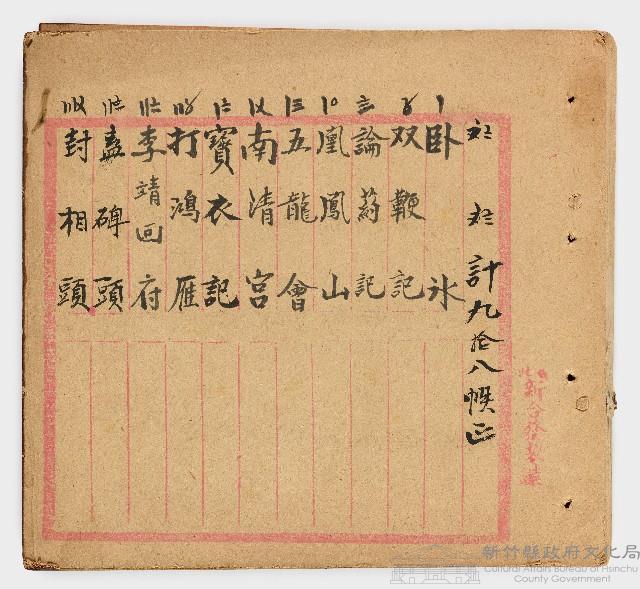 計九拾八
卧氷
双鞭記
論葯記
凰鳳山
五龍會
南清宮
寶衣記
打鴻雁
李靖回府
碑頭
封相頭
新竹縣政府文化局
Cultural Affairs Bureau of Hsinchu
County Government